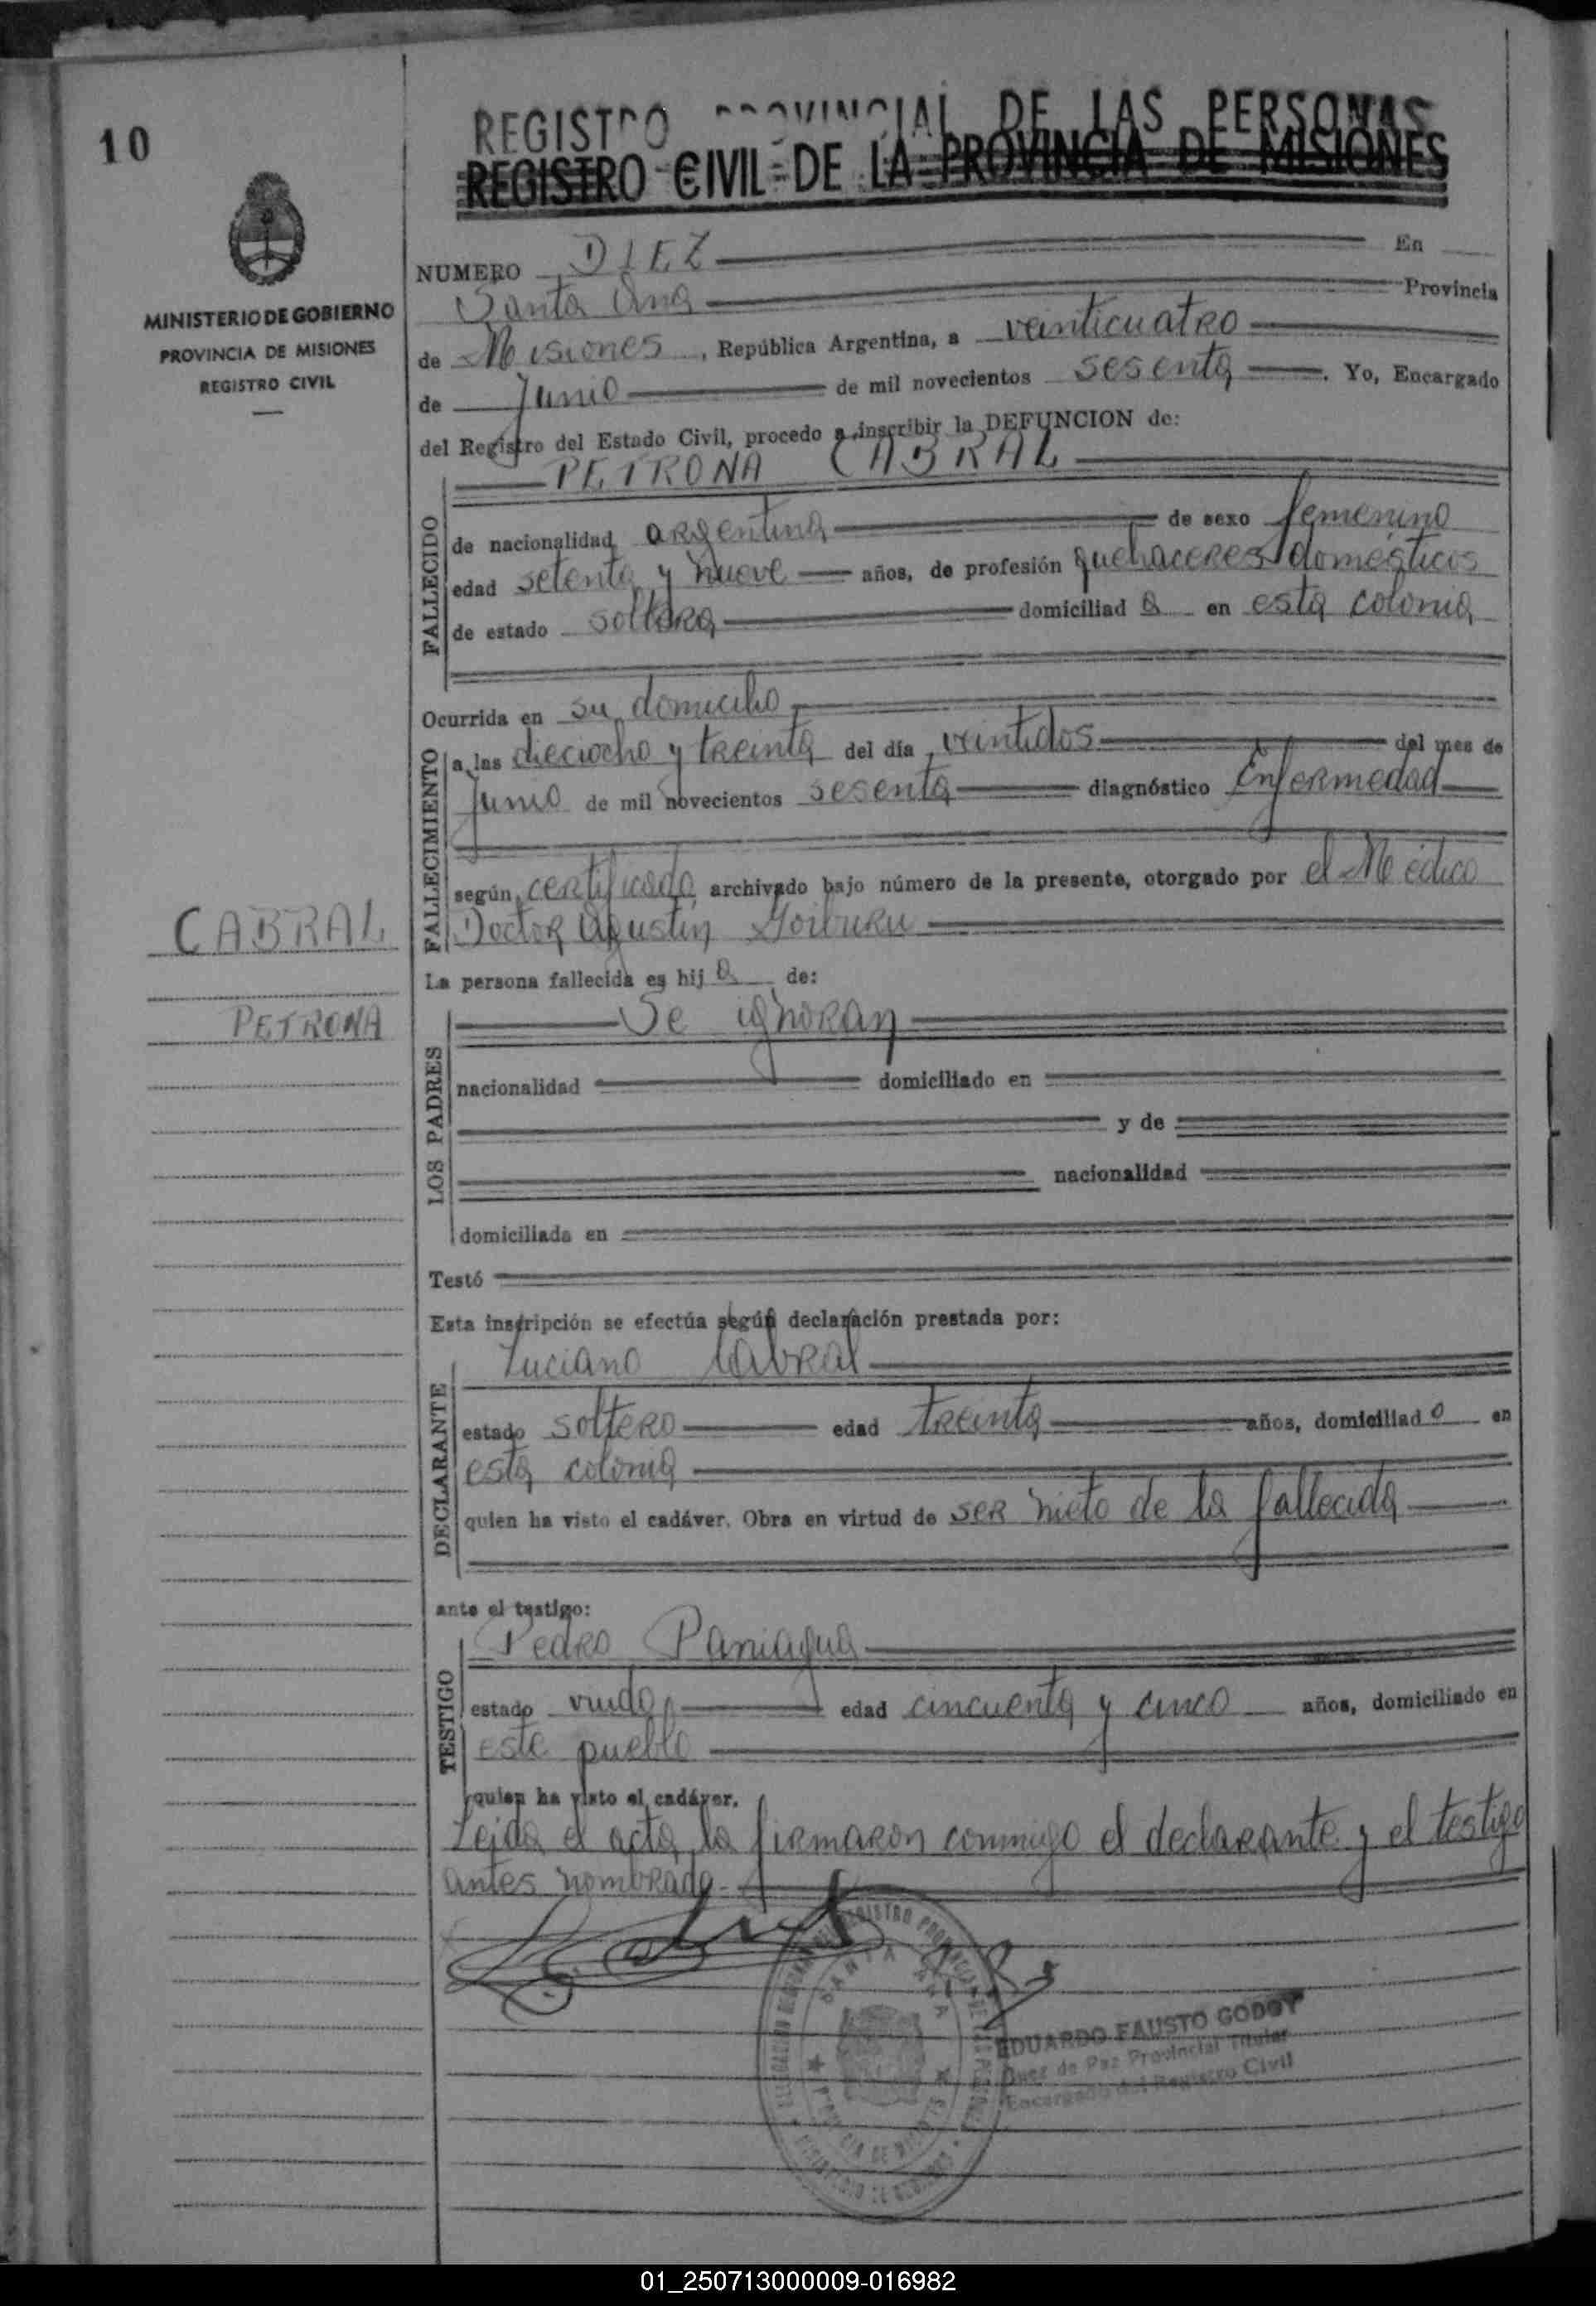 10
REGISTRO PROVINCIAL DE LAS PERSONAS
REGISTRO CIVIL DE LA PROVINCIA DE MISIONES
MINISTERIO DE GOBIERNO
PROVINCIA DE MISIONES
REGISTRO CIVIL
NUMERO DIEZ En
Santa Ana Provincia
de Misiones, República Argentina, a veinticuatro
de Junio de mil novecientos sesenta. Yo, Encargado
del Registro del Estado Civil, procedo a inscribir la DEFUNCION de:
PETRONA CABRAL
FALLECIDO
de nacionalidad argentina de sexo femenino
edad setenta y nueve años, de profesión quehaceres domésticos
de estado soltera domiciliad a en esta colonia
Ocurrida en su domicilio
FALLECIMIENTO
a las dieciocho y treinta del día veintidos del mes de
Junio de mil novecientos sesenta diagnóstico Enfermedad
según certificado archivado bajo número de la presente, otorgado por el Médico
Doctor Agustín Goiburu
CABRAL
PETRONA
La persona fallecida es hij a de:
LOS PADRES
Se ignoran
nacionalidad domiciliado en
y de
nacionalidad
domiciliada en
Testó
Esta inscripción se efectúa según declaración prestada por:
DECLARANTE
Luciano Cabral
estado soltero edad treinta años, domiciliad o en
esta colonia
quien ha visto el cadáver. Obra en virtud de ser nieto de la fallecida
ante el testigo:
TESTIGO
Pedro Paniagua
estado viudo edad cincuenta y cinco años, domiciliado en
este pueblo
quien ha visto el cadáver.
Leida el acta, la firmaron conmigo el declarante y el testigo
antes nombrado.
SANTA ANA
EDUARDO FAUSTO GODOY
Juez de Paz Provincial Titular
Encargado del Registro Civil
01_250713000009-016982